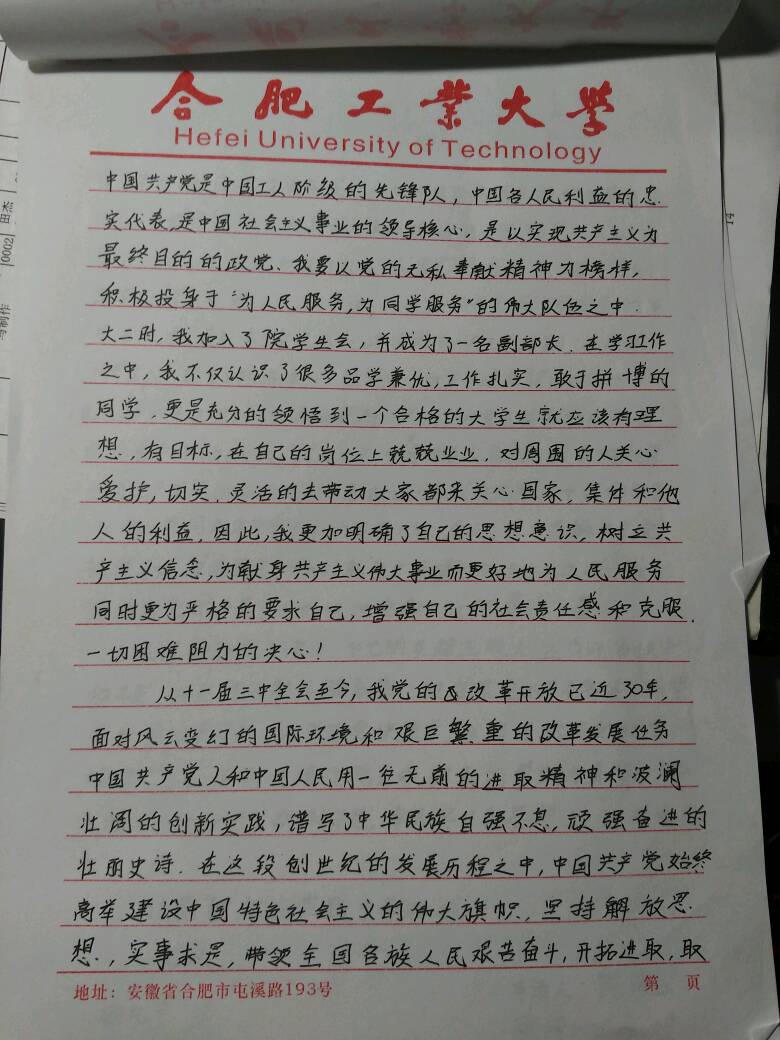 合肥工業大学
Hefei University of Technology
中国共产党是中国工人阶级的先锋队，中国各人民利益的忠
实代表，是中国社会主义事业的领导核心，是以实现共产主义为
最终目的的政党、我要以党的无私奉献精神为榜样，
积极投身于“为人民服务，为同学服务”的伟大队伍之中．
大二时，我加入了院学生会，并成为了一名副部长．在学习工作
之中，我不仅认识了很多品学兼优，工作扎实，敢于拼博的
同学．更是充分的领悟到一个合格的大学生就应该有理
想，有目标，在自己的岗位上兢兢业业．对周围的人关心
爱护，切实．灵活的去带动大家都来关心国家，集体和他
人的利益，因此，我更加明确了自己的思想意识，树立共
产主义信念，为献身共产主义伟大事业而更好地为人民服务
同时更为严格的要求自己，增强自己的社会责任感和克服
一切困难阻力的决心！
从十一届三中全会至今，我党的改革开放已近30年，
面对风云变幻的国际环境和艰巨繁重的改革发展任务
中国共产党人和中国人民用一往无前的进取精神和波澜
壮阔的创新实践，谱写了中华民族自强不息，顽强奋进的
壮丽史诗．在这段创世纪的发展历程之中，中国共产党始终
高举建设中国特色社会主义的伟大旗帜，坚持解放思
想，实事求是，带领全国各族人民艰苦奋斗，开拓进取，取
地址：安徽省合肥市屯溪路193号 第 页